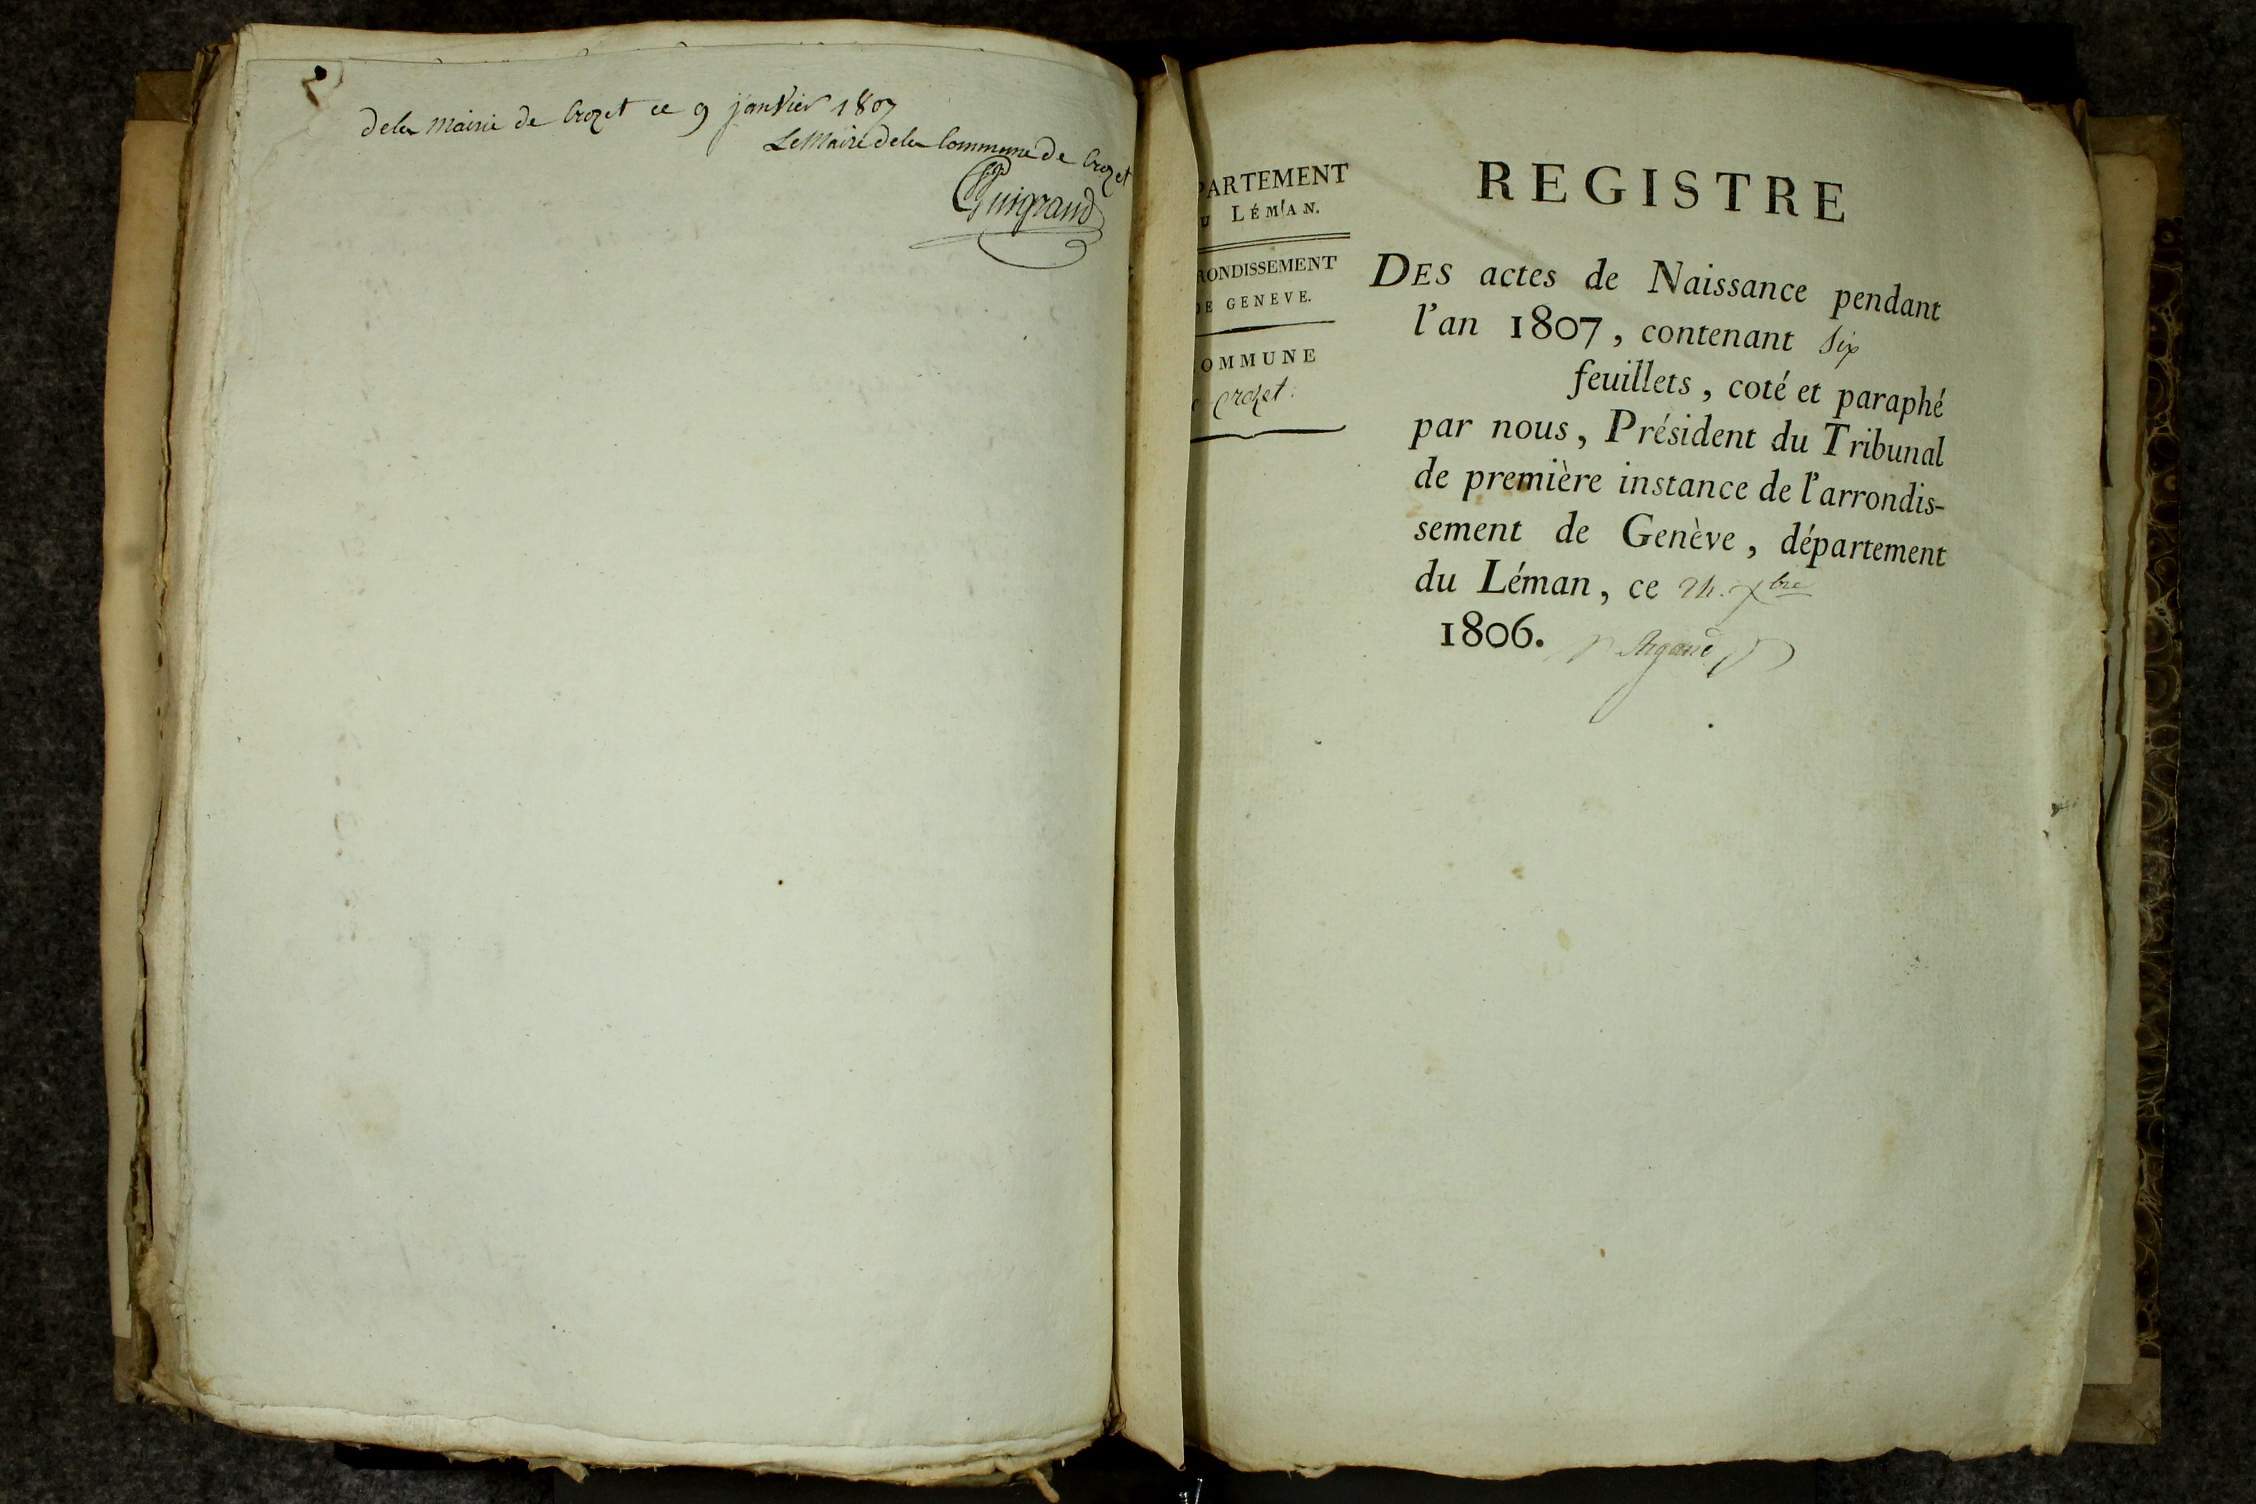 dela Mairie de Crozet ce 9 janvier 1807
Le Maire dela Commune de Crozet
Guigrand
PARTEMENT
U LÉMAN.
RONDISSEMENT
DE GENEVE.
OMMUNE
Crozet.
REGISTRE
DES actes de Naissance pendant
l'an 1807, contenant Six
feuillets, coté et paraphé
par nous, Président du Tribunal
de première instance de l'arrondis-
sement de Genève, département
du Léman, ce 24. Xbre
1806.
Argand